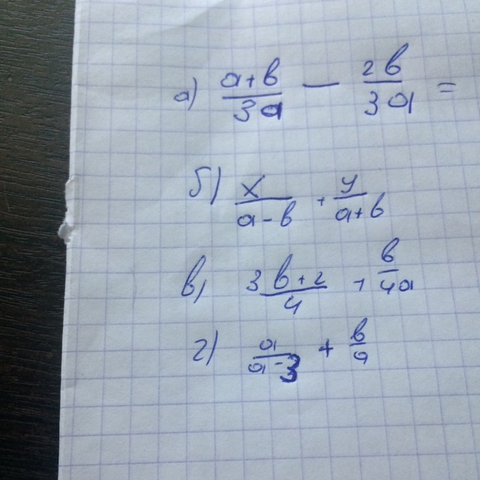 а) (a+b)/(3a) — (2b)/(3a) =
б) x/(a-b) + y/(a+b)
в) (3b+2)/4 + b/(4a)
г) a/(a-3) + b/a